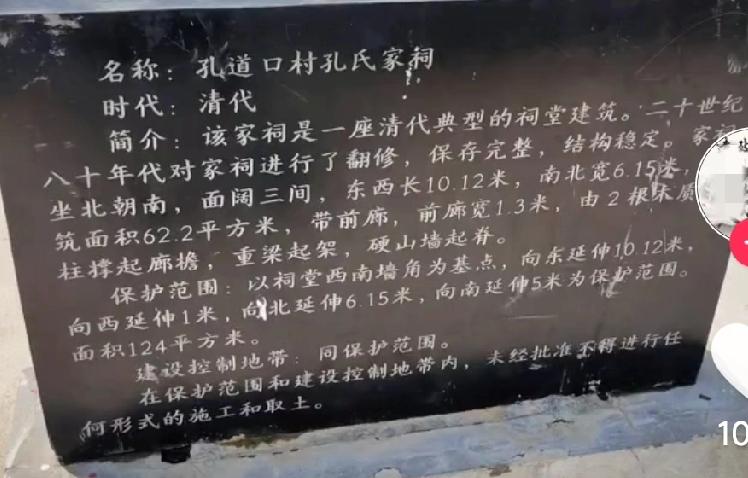 名称：孔道口村孔氏家祠
时代：清代
简介：该家祠是一座清代典型的祠堂建筑。二十世纪
八十年代对家祠进行了翻修，保存完整，结构稳定。家祠
坐北朝南，面阔三间，东西长10.12米，南北宽6.15米，
筑面积62.2平方米，带前廊，前廊宽1.3米，由2根木质
柱撑起廊擔，重梁起架，硬山墙起脊。
保护范围：以祠堂西南墙角为基点，向东延伸10.12米，
向西延伸1米，向北延伸6.15米，向南延伸5米为保护范围。
面积124平方米。
建设控制地带：同保护范围。
在保护范围和建设控制地带内，未经批准不得进行任
何形式的施工和取土。
10